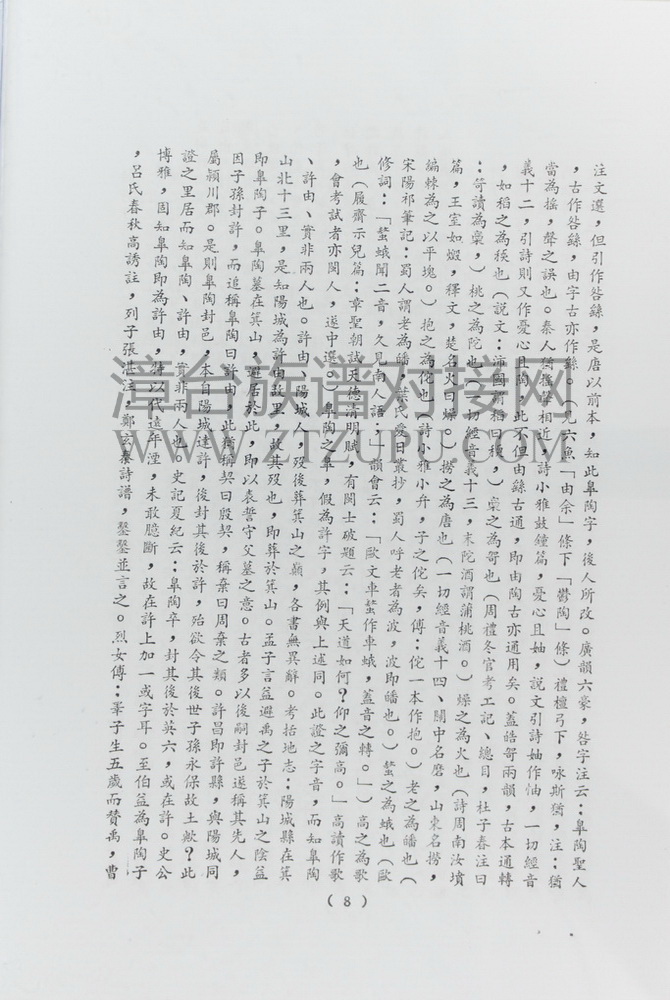 注文選，但引作咎繇，是唐以前本，知此皋陶字，後人所改。廣韻六豪，咎字注云：皋陶聖人
，古作咎繇，由字古亦作繇。（九六魚「由余」條下「鬱陶」條）禮檀弓下，咏斯猶，注：猶
當為搖，聲之誤也。秦人猶搖聲相近，詩小雅鼓鍾篇，憂心且妯，說文引詩妯作怞，一切經音
義十二，引詩則又作憂心且陶，此不但由繇古通，即由陶古亦通用矣。蓋皓哿兩韻，古本通轉
，如稻之為稬也（說文：沛國謂稻曰稬，）稾之為哿也（周禮冬官考工記、總目，杜子春注曰
：笴讀為稾，）桃之為陀也（一切經音義十三，末陀酒謂蒲桃酒。）燥之為火也（詩周南汝墳
篇，王室如燬，釋文，楚名火曰燥。）撈之為唐也（一切經音義十四、關中名磨，山東名撈，
編棘為之以平塊。）抱之為佗也（詩小雅小弁，予之佗矣，傅：佗一本作抱。）老之為皤也（
宋陽祁筆記：蜀人謂老為皤，葉氏愛日叢抄，蜀人呼老者為波，波即皤也。）螯之為蛾也（歐
修詞：「螯蛾聞二音，久見南人語：」韻會云：「歐文車螯作車蛾，蓋音之轉。」）高之為歌
也（履齋示兒篇：韋聖朝試天德清明賦，有閩士破題云：「天道如何？仰之彌高。」高讀作歌
，會考試者亦閩人，遂中選。）皋陶之皋，假為許字，其例與上述同。此證之字音，而知皋陶
、許由、實非兩人也。許由、陽城人，歿後葬箕山之巔，各書無異辭。考括地志：陽城縣在箕
山北十三里，是知陽城為許由故里，故其歿也，即葬於箕山。孟子言益避禹之子於箕山之陰益
即皋陶子。皋陶墓在箕山，避居於此，即以表誓守父墓之意。古者多以後嗣封邑遂稱其先人，
因子孫封許，而追稱皋陶曰許由，此猶稱契曰殷契，稱棄曰周棄之類。許昌即許縣，與陽城同
屬潁川郡。是則皋陶封邑，本自陽城達許，後封其後於許，殆欲令其後世子孫永保故土歟？此
證之里居而知皋陶、許由，實非兩人也。史記夏紀云：皋陶卒，封其後於英六，或在許。史公
博雅，固知皋陶即為許由，特以代遠年湮，未敢臆斷，故在許上加一或字耳。至伯益為皋陶子
，呂氏春秋高誘註，列子張湛注，鄭玄秦詩譜，鑿鑿並言之。烈女傅：睪子生五歲而贊禹，曹
（8）
漳台族谱对接网
WWW.ZTZUPU.COM